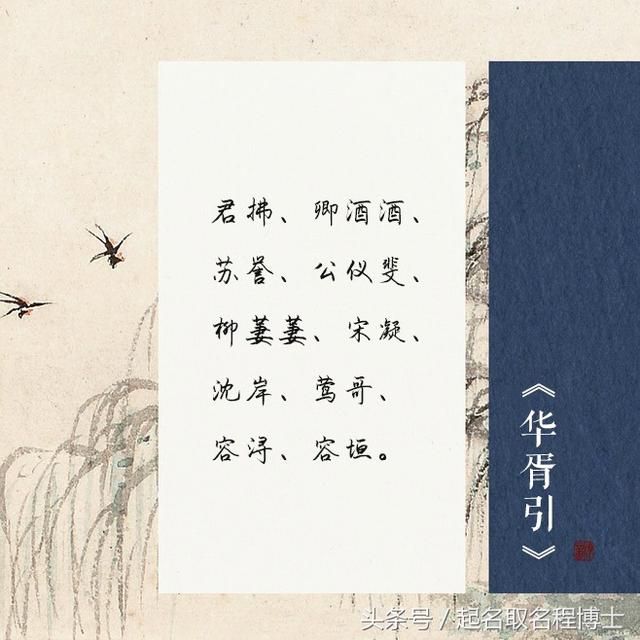 君拂、卿酒酒、
苏誉、公仪斐、
柳萋萋、宋凝、
沈岸、莺哥、
容浔、容垣。
《华胥引》
头条号/起名取名程博士